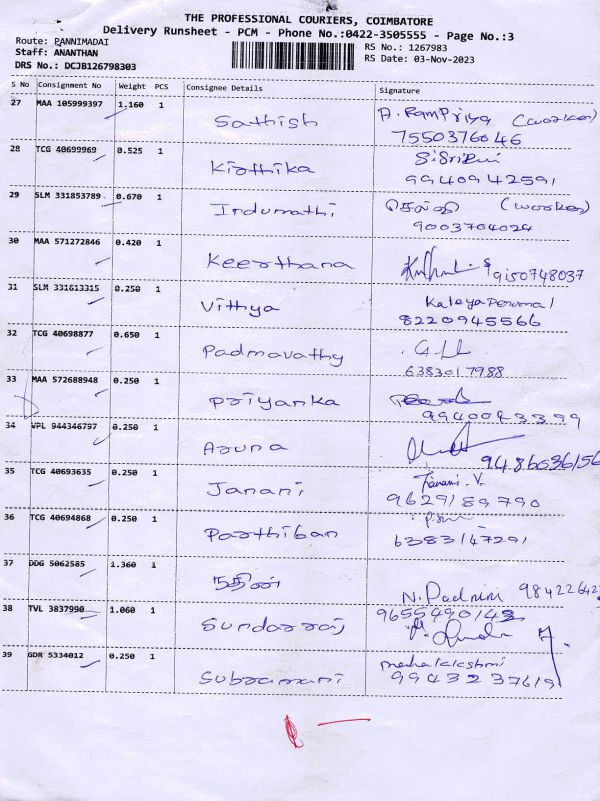 THE PROFESSIONAL COURIERS, COIMBATORE
Delivery Runsheet - PCM - Phone No.:0422-3505555 - Page No.:3
Route: PANNIMADAI
Staff: ANANTHAN
DRS No.: DCJB126798303
RS No.: 1267983
RS Date: 03-Nov-2023
S No Consignment No Weight PCS Consignee Details Signature
27 MAA 105999397 1.160 1 Sathish A. RamPriya (worker)
7550376046
28 TCG 40699969 0.525 1 Kirthika S. Sri
9940942591
29 SLM 331853789 0.670 1 Indumathi செல்வி (worker)
9003704024
30 MAA 571272846 0.420 1 Keerthana 9150748037
31 SLM 331613315 0.250 1 Vithya Kaleyaperumal
8220945566
32 TCG 40698877 0.650 1 Padmavathy
6383017988
33 MAA 572688948 0.250 1 Priyanka
9940043399
34 VPL 944346797 0.250 1 Aruna
9486036156
35 TCG 40693635 0.250 1 Janani Janani. V.
9629189790
36 TCG 40694868 0.250 1 Parthiban
6383147291
37 DDG 5062585 1.360 1 நதின் N. Padmini 984226427
38 TVL 3837990 1.060 1 Sundarraj 9655490142
39 GDR 5334012 0.250 1 Subramani mahalakshmi
9943237619